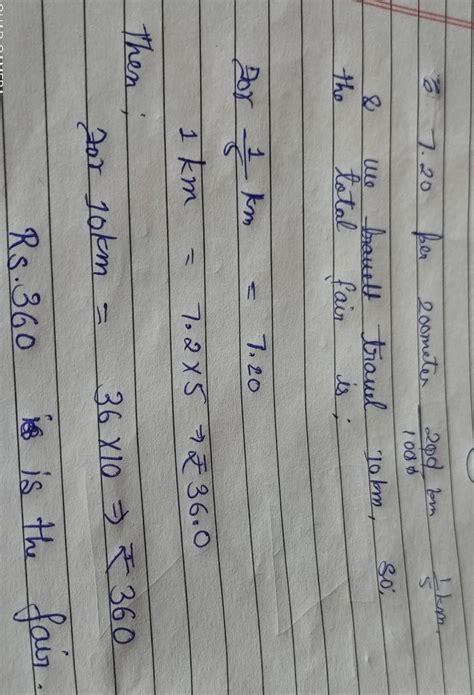 ₹ 7.20 per 200meter 200/1000 km 1/5 km.
& we travel 10km, so,
the total fair is;
For 1/5 km = 7.20
1 km = 7.2×5 ⇒ ₹36.0
Then;
For 10km = 36×10 ⇒ ₹360
Rs.360 is the fair.